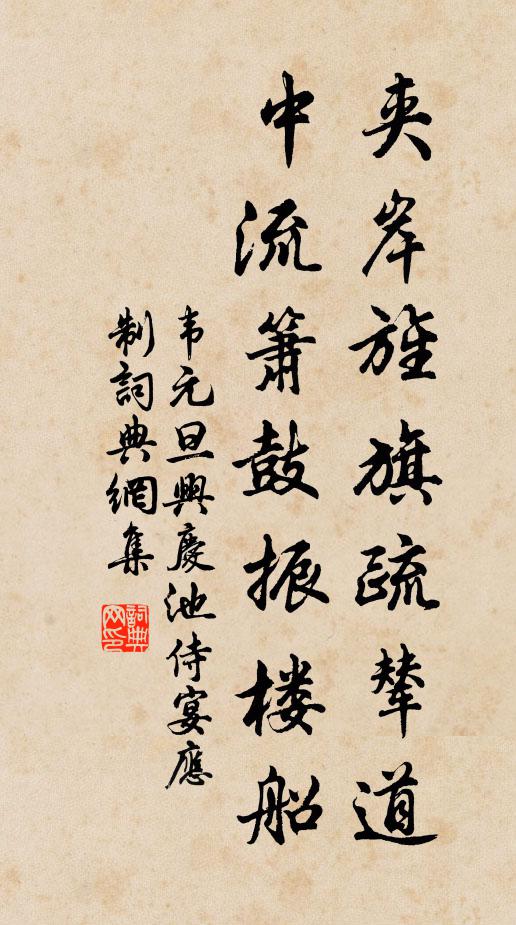 夹岸旌旗疏辇道
中流箫鼓振楼船
韦元旦興慶池侍宴應
制詞典網集
詞典网印